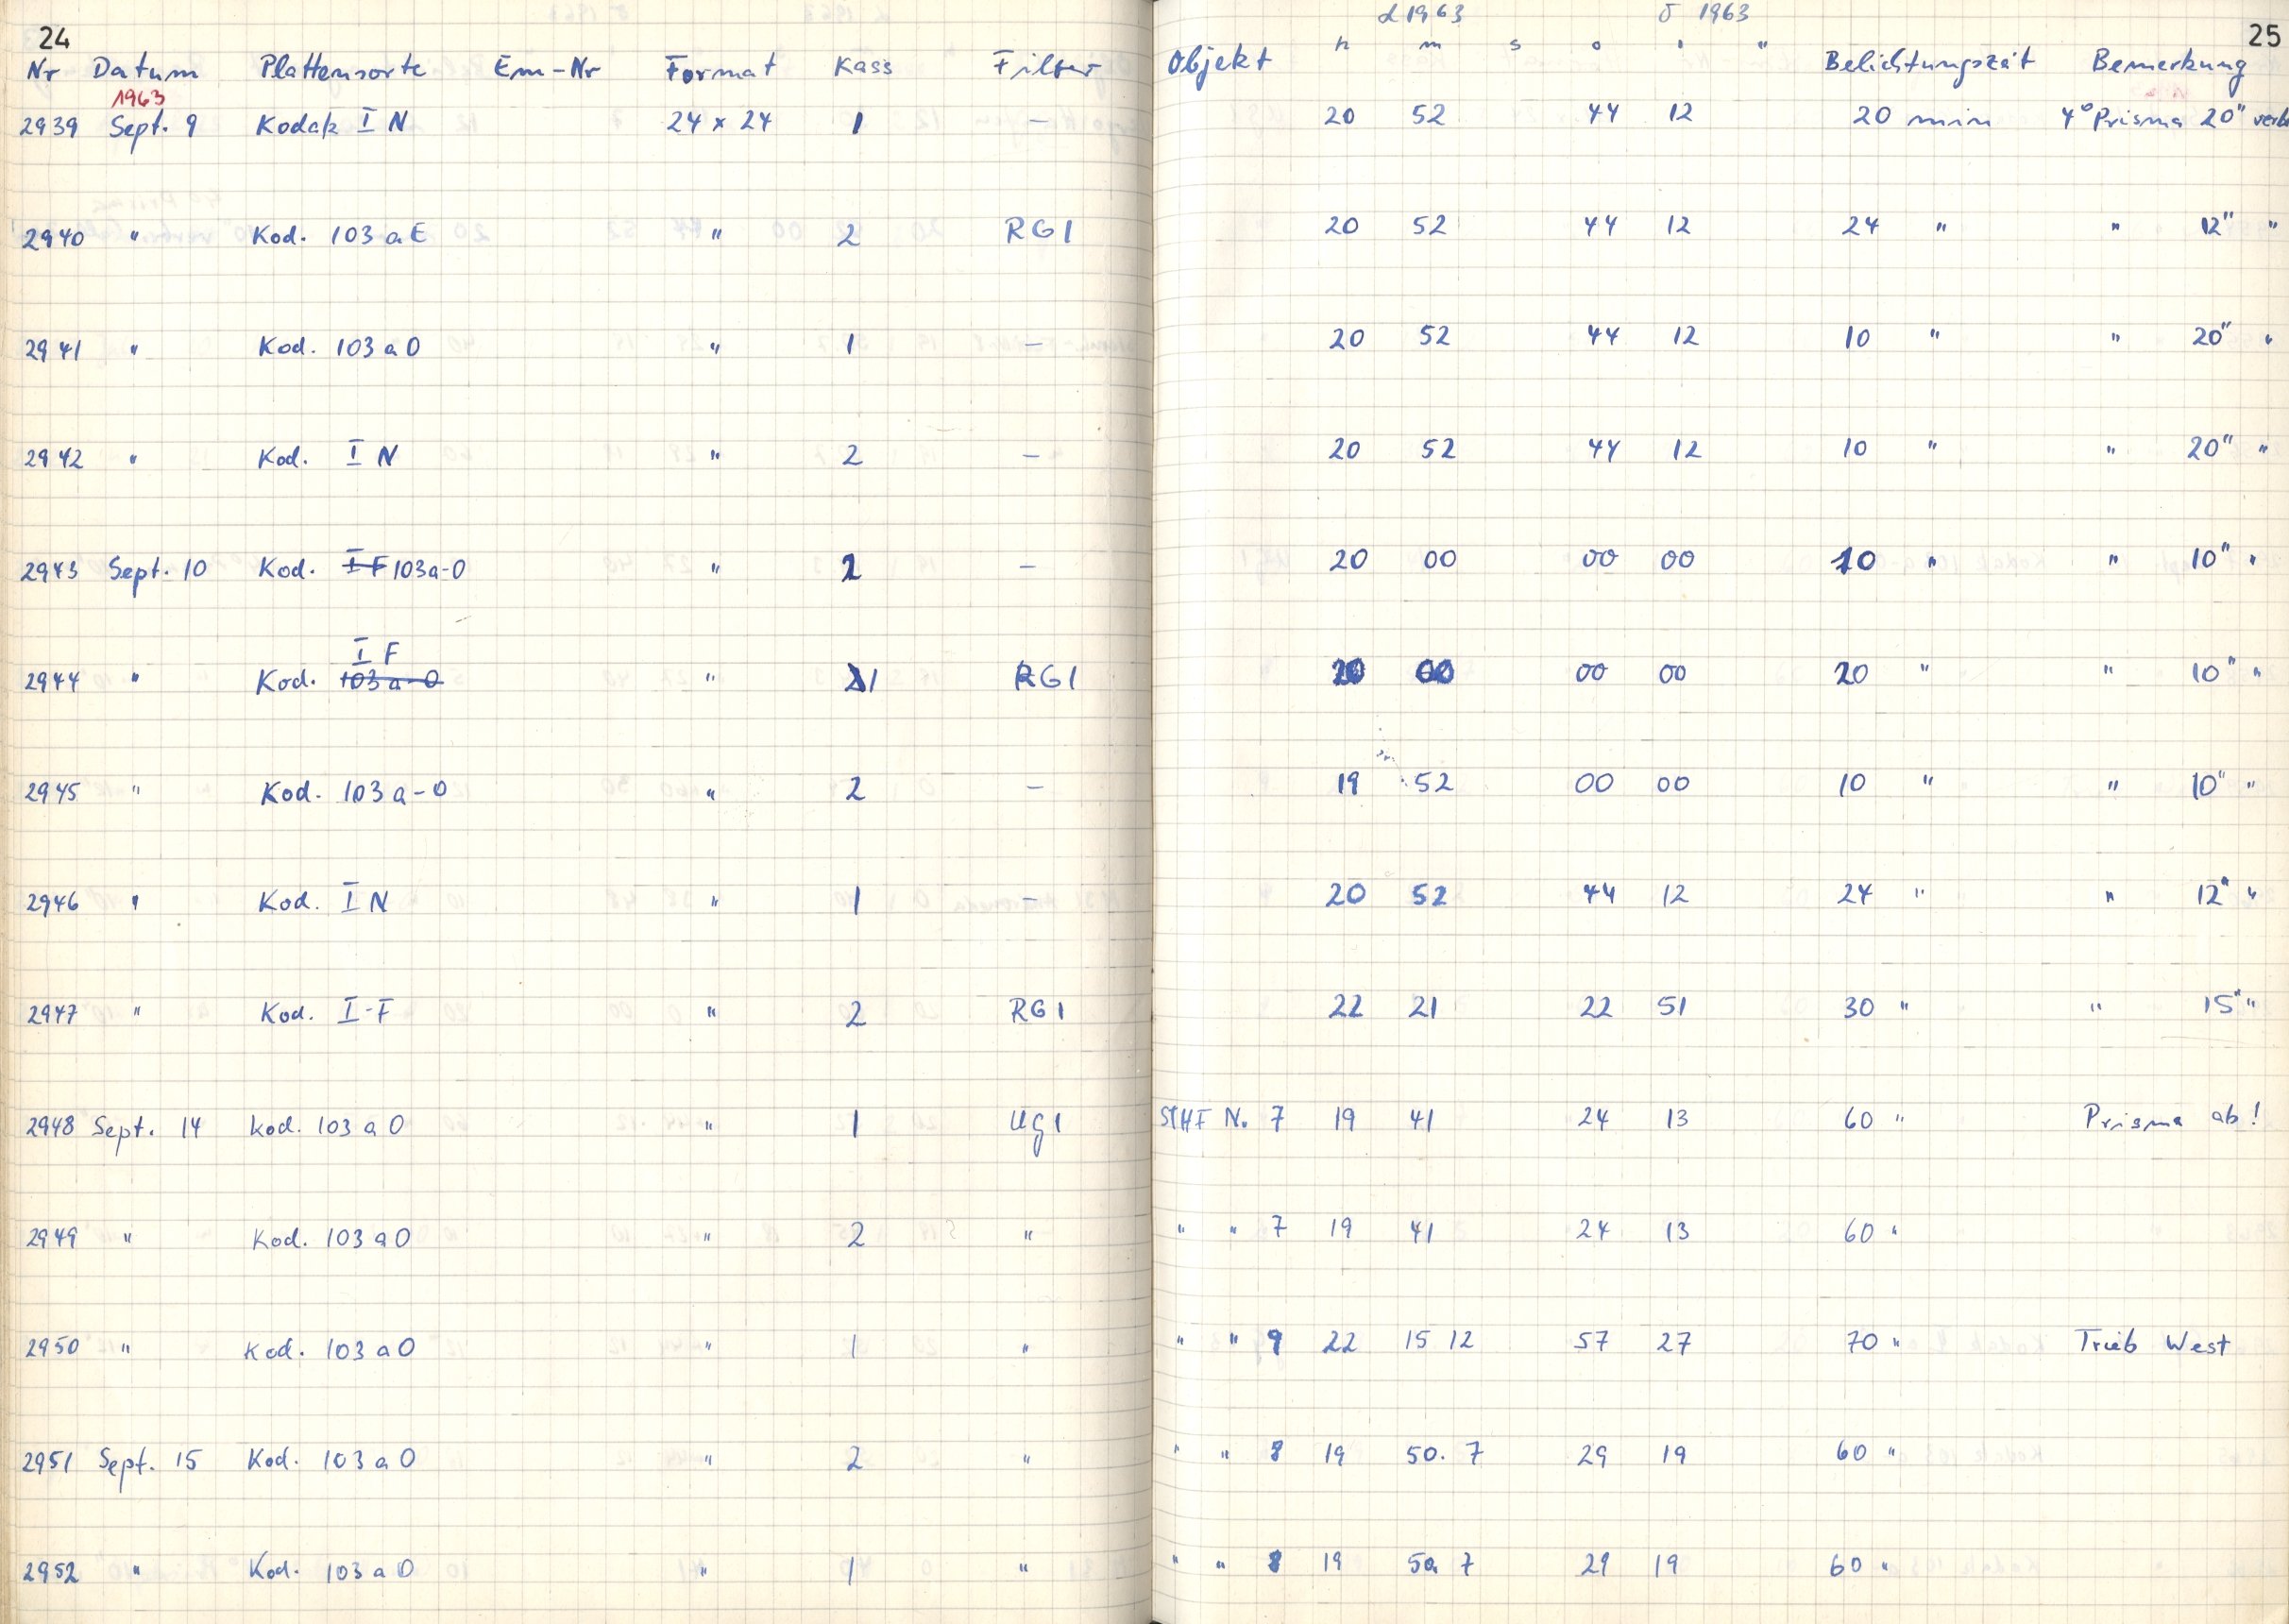 24
Nr Datum Plattensorte Em-Nr Format Kass Filter
1963
2939 Sept. 9 Kodak I N 24 x 24 1 –
2940 " Kod. 103 a E " 2 RG1
2941 " Kod. 103 a O " 1 –
2942 " Kod. I N " 2 –
2943 Sept. 10 Kod. I F 103a-O " 2 –
I F
2944 " Kod. 103 a-O " 1 RG1
2945 " Kod. 103 a-O " 2 –
2946 " Kod. I N " 1 –
2947 " Kod. I-F " 2 RG1
2948 Sept. 14 Kod. 103 a O " 1 UG1
2949 " Kod. 103 a O " 2 "
2950 " Kod. 103 a O " 1 "
2951 Sept. 15 Kod. 103 a O " 2 "
2952 " Kod. 103 a O " 1 "
25
α 1963 δ 1963
Objekt h m s o ' " Belichtungszeit Bemerkung
20 52 44 12 20 min 4° Prisma 20" verb
20 52 44 12 24 " " 12" "
20 52 44 12 10 " " 20" "
20 52 44 12 10 " " 20" "
20 00 00 00 10 " " 10" "
20 00 00 00 20 " " 10" "
19 52 00 00 10 " " 10" "
20 52 44 12 24 " " 12" "
22 21 22 51 30 " " 15" "
N. 7 19 41 24 13 60 " Prisma ab!
" " 7 19 41 24 13 60 "
" " 9 22 15 12 57 27 70 " Trieb West
" " 8 19 50. 7 29 19 60 "
" " 8 19 50 7 29 19 60 "